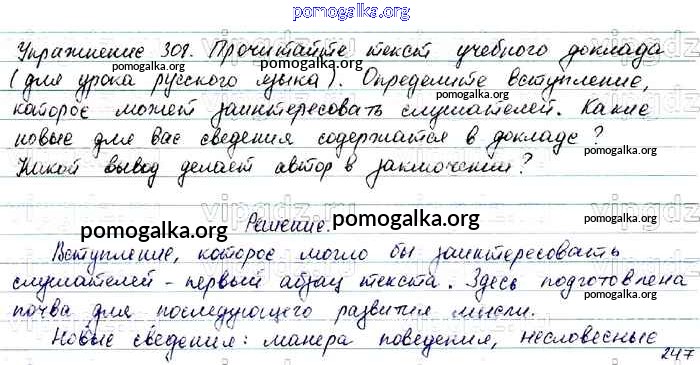 pomogalka.org
Упражнение 308. Прочитайте текст учебного доклада
(для урока русского языка). Определите вступление,
которое может заинтересовать слушателей. Какие
новые для вас сведения содержатся в докладе?
Какой вывод делает автор в заключении?
Решение.
Вступление, которое могло бы заинтересовать
слушателей - первый абзац текста. Здесь подготовлена
почва для последующего развития мысли.
Новые сведения: манера поведения, несловесные
247